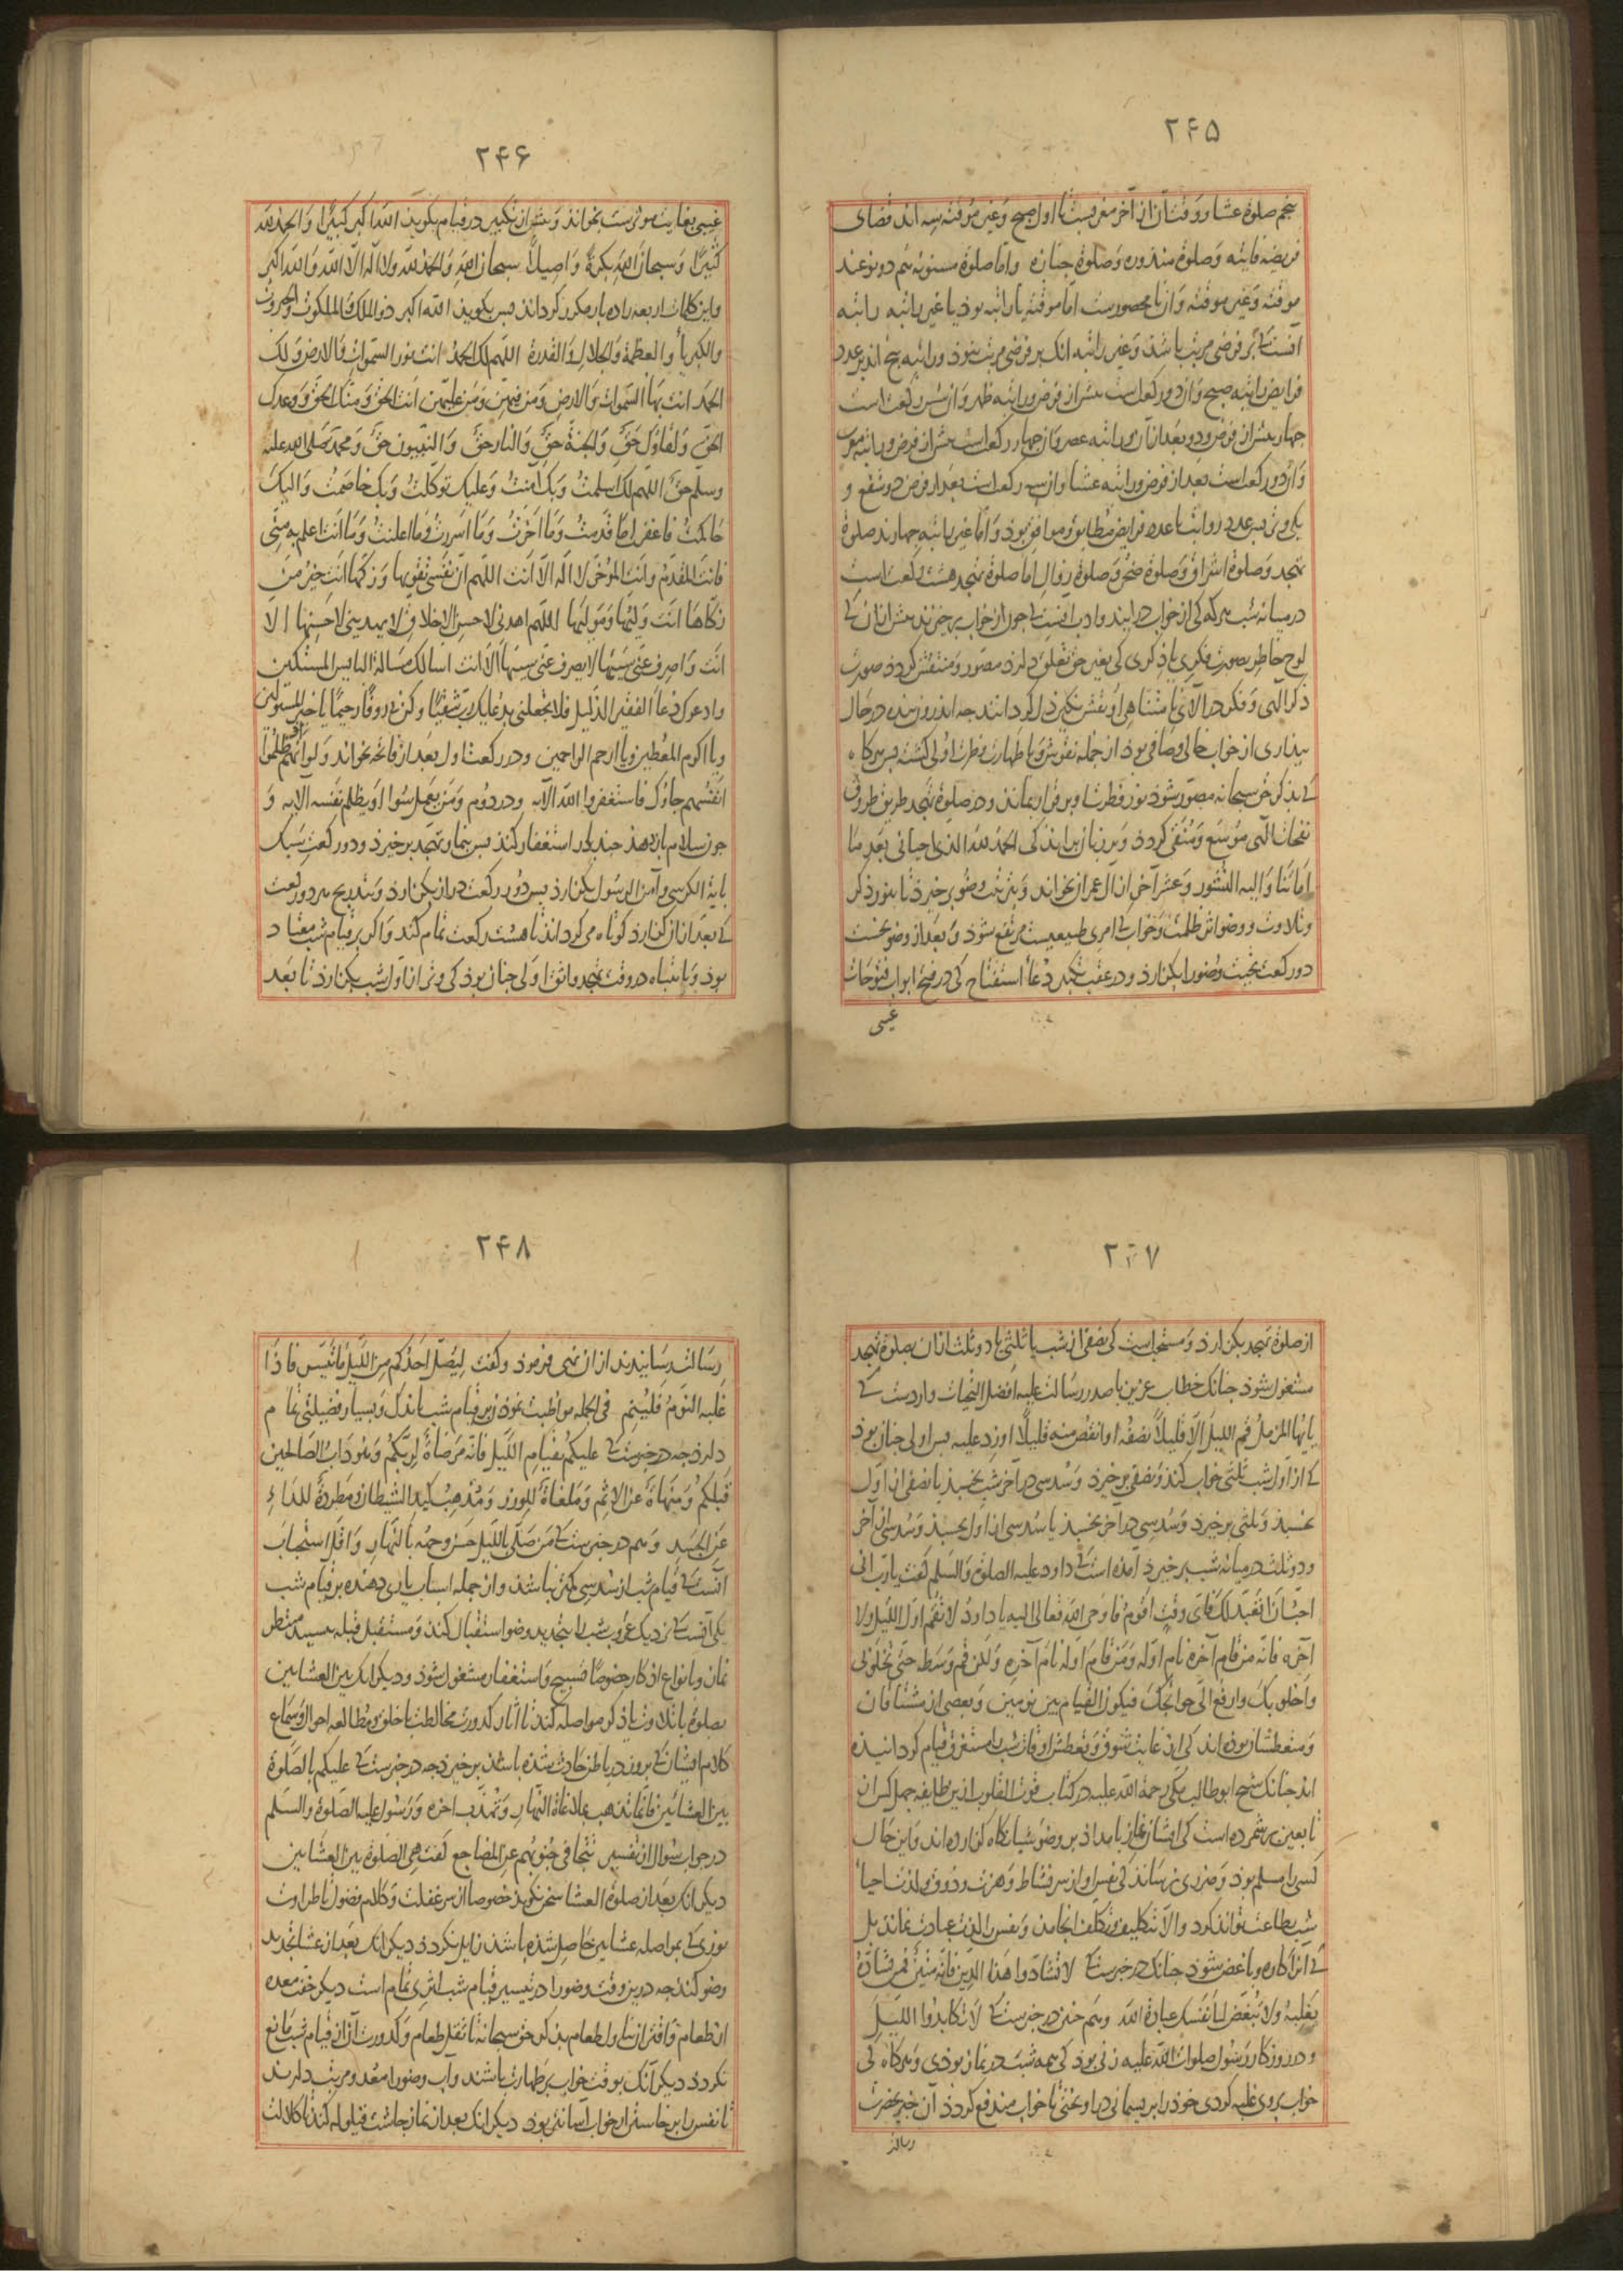 ۲۴۵
پنجم صلوة عشا و وقت آن از آخر مغربست تا اول صبح و غیر موقته سه اند قضای
فریضه فایته و صلوة منذوره و صلوة جنازه و اما صلوة مسنونه هم دو نوعند
موقته و غیر موقته و آن نا محصورست اما موقته یا راتبه بود یا غیر راتبه راتبه
آنست که بر فرضی مرتب باشد و غیر راتبه انک بر فرضی مرتب نبود و راتبه پنج اند بر عدد
فرایض راتبه صبح و آن دو رکعت است پیش از فرض و راتبه ظهر و آن شش رکعت است
چهار پیش از فرض و دو بعد از آن و راتبه عصر و آن چهار رکعت است پیش از فرض و راتبه مغرب
و آن دو رکعت است بعد از فرض و راتبه عشا و آن سه رکعت است بعد از فرض دو شفع و
یکی وتر پس عدد رواتب با عدد فرایض مطابق و موافق بود و اما غیر راتبه چهارند صلوة
تهجد و صلوة اشراق و صلوة ضحی و صلوة زوال اما صلوة تهجد هشت رکعت است
در میانه شب هر که کی از خواب درایند و ادب آنست که چون از خواب برخیزند پیش از آن که
لوح خاطر بصورت فکری یا ذکری کی بغیر حق تعلق دارد مصور و منتقش گردد صورت
ذکر الهی و فکر در آلای نا متناهی او نقش نگین دل گردانند چه اندرون بنده در حال
بیداری از خواب خالی و صافی بود از جمله نقوش و با طهارت فطرت اولی گشته پس هر گاه
که بذکر حق سبحانه مصور شود نور فطرت او برقرار بماند و در صلوة تهجد طریق طروق
نفحات الهی موسع و منقی گردد و بر زبان براند کی الحمد لله الذی احیانی بعد ما
اماتنا و الیه النشور و عشر آخر از آل عمران بخواند و بترتیب وضو برخیزد تا بنور ذکر
و تلاوت و وضو اثر ظلمت و خواب که امری طبیعیست مرتفع شود و بعد از وضو نخست
دو رکعت تحیت وضو را بگزارد و در عقب تکبیر دعاء استفتاح کی در فتح ابواب فتوحات
غیبی
۲۴۶
غیبی بغایت موثرست بخواند و پیش از تکبیر در قیام بگوید الله اکبر کبیرا و الحمد لله
کثیرا و سبحان الله بکرة و اصیلا سبحان الله و الحمد لله و لا اله الا الله و الله اکبر
و این کلمات اربعه را ده بار مکرر گرداند پس بگوید الله اکبر ذو الملک و الملکوت و الجبروت
و الکبریاء و العظمة و الجلال و القدرة اللهم لک الحمد انت نور السموات و الارض و لک
الحمد انت بهاء السموات و الارض و من فیهن و من علیهن انت الحق و منک الحق و وعدک
الحق و لقاؤک حق و الجنة حق و النار حق و النبیون حق و محمد صلی الله علیه
وسلم حق اللهم لک اسلمت و بک آمنت و علیک توکلت و بک خاصمت و الیک
حاکمت فاغفر لی ما قدمت و ما اخرت و ما اسررت و ما اعلنت و ما انت اعلم به منی
فانت المقدم و انت المؤخر لا اله الا انت اللهم آت نفسی تقویها و زکها انت خیر من
زکاها انت ولیها و مولیها اللهم اهدنی لاحسن الاخلاق لا یهدینی لاحسنها الا
انت و اصرف عنی سیئها لا یصرف عنی سیئها الا انت اسالک مسالة البایس المستکین
و ادعوک دعاء الفقیر الذلیل فلا تجعلنی بدعایک رب شقیا و کن بی روفا رحیما یا خیر المسئولین
و یا اکرم المعطین و یا ارحم الراحمین و در رکعت اول بعد از فاتحه بخواند و لو انهم اذ ظلموا
انفسهم جاؤک فاستغفروا الله الآیه و در دوم و من یعمل سوءا او یظلم نفسه الایه و
چون سلام باز دهد چند بار استغفار کند پس بنماز تهجد برخیزد و دو رکعت سبک
بایة الکرسی و آمن الرسول بگزارد پس دو رکعت دراز بگزارد و بتدریج هر دو رکعت
که بعد از آن گزارد کوتاه می گرداند تا هشت رکعت تمام کند و اگر بر قیام شب معتاد
بود و بانتباه در وقت تهجد واثق اولی چنان بود کی وتر از اول شب بگزارد تا بعد
۲۴۷
از صلوة تهجد بگزارد و مستحب است کی نصفی از شب یا ثلثی یا دو ثلث از آن بصلوة تهجد
مشغول شود چنانک خطاب عزیز با صدر رسالت علیه افضل التحیات واردست که
یا ایها المزمل قم اللیل الا قلیلا نصفه او انقص منه قلیلا او زد علیه پس اولی چنان بود
که از اول شب ثلثی خواب کند و نصفی برخیزد و سدسی در آخر شب بخسبد یا نصفی از اول
بخسبد و ثلثی برخیزد و سدسی در آخر بخسبد یا سدسی از اول بخسبد و سدسی از آخر
و دو ثلث در میانه شب برخیزد آمده است که داود علیه الصلوة و السلم گفت یا رب انی
احب ان اتعبد لک فای وقت اقوم فاوحی الله تعالی الیه یا داود لا تقم اول اللیل و لا
آخره فانه من قام آخره نام اوله و من قام اوله نام آخره و لکن قم وسطه حتی تخلو بی
و اخلو بک و ارفع الی حوائجک فیکون القیام بین نومین و بعضی از مشتاقان
و متعطشان بوده اند کی از غایت شوق و تعطش اوقات شب را مستغرق قیام گردانیده
اند چنانک شیخ ابو طالب مکی رحمة الله علیه در کتاب قوت القلوب ازین طایفه چهل کس از
تابعین بر شمرده است کی ایشان نماز بامداد بر وضوء شبانگاه گزارده اند و این حال
کسی را مسلم بود و ضرری نرساند کی نفس او از سر نشاط و هزت و ذوق و لذت احیاء
شب بطاعت تواند کرد و الا بتکلیف و تکلف انجامد و نفس را لذت عبادت نماند بل
که از آن کاره و باغض شود چنانک در خبرست که لا تشادوا هذا الدین فانه متین فمن شاده
یغلبه و لا تبغض الی نفسک عبادة الله و هم چنین در خبرست که لا تکابدوا اللیل
و در روزگار رسول صلوات الله علیه زنی بود کی همه شب در نماز بودی و هر گاه کی
خواب بر وی غلبه کردی خود را بریسمانی در آویختی تا خواب مندفع گردد آن خبر بحضرت
رسالت
۲۴۸
رسالت رسانیدند از آن نهی فرمود و گفت لیصل احدکم من اللیل ما تیسر فاذا
غلبه النوم فلینم فی الجمله مواظبت نمودن بر قیام شب باندک و بسیار فضیلتی تمام
دارد چه در خبرست که علیکم بقیام اللیل فانه مرضاة لربکم و هو داب الصالحین
قبلکم و منهاة عن الاثم و ملغاة للوزر و مذهب کید الشیطان و مطردة للداء
عن الجسد و هم در خبرست که من صلی باللیل حسن وجهه بالنهار و اقل استحباب
آنست که قیام شب از سدسی کمتر نباشد و از جمله اسباب یاری دهنده بر قیام شب
یکی آنست که نزدیک غروب شب را بتجدید وضو استقبال کند و مستقبل قبله بسیند منتظر
نماز و بانواع اذکار خصوصا تسبیح و استغفار مشغول شود و دیگر انک بین العشایین
بصلوة یا تلاوت یا ذکر مواصله کند تا آثار کدورت مخالطت با خلق و مطالعه احوال و سماع
کلام ایشان که بروز در باطن حادث شده باشد برخیزد چه در خبرست که علیکم بالصلوة
بین العشایین فانها تذهب بملاغاة النهار و تهذب اخره و رسول علیه الصلوة و السلم
در جواب سوال از تفسیر تتجافی جنوبهم عن المضاجع گفت هی الصلوة بین العشایین
دیگر انک بعد از صلوة العشا سخن نگوید خصوصا از سر غفلت و کلام فضول تا طراوت
نوری که بمواصله عشایین حاصل شده باشد زایل نگردد دیگر انک بعد از عشا تجدید
وضو کند چه درین وقت وضو را در تیسیر قیام شب اثری تمام است دیگر خفت معده
از طعام و اقتران تناول طعام بذکر حق سبحانه تا ثقل طعام و کدورت آن از قیام شب مانع
نگردد دیگر آنک بوقت خواب بر طهارت باشند و آب وضو را معد و مرتب دارند
تا نفس را برخاستن از خواب آسانتر بود دیگر انک بعد از نماز چاشت قیلوله کند تا کلالت